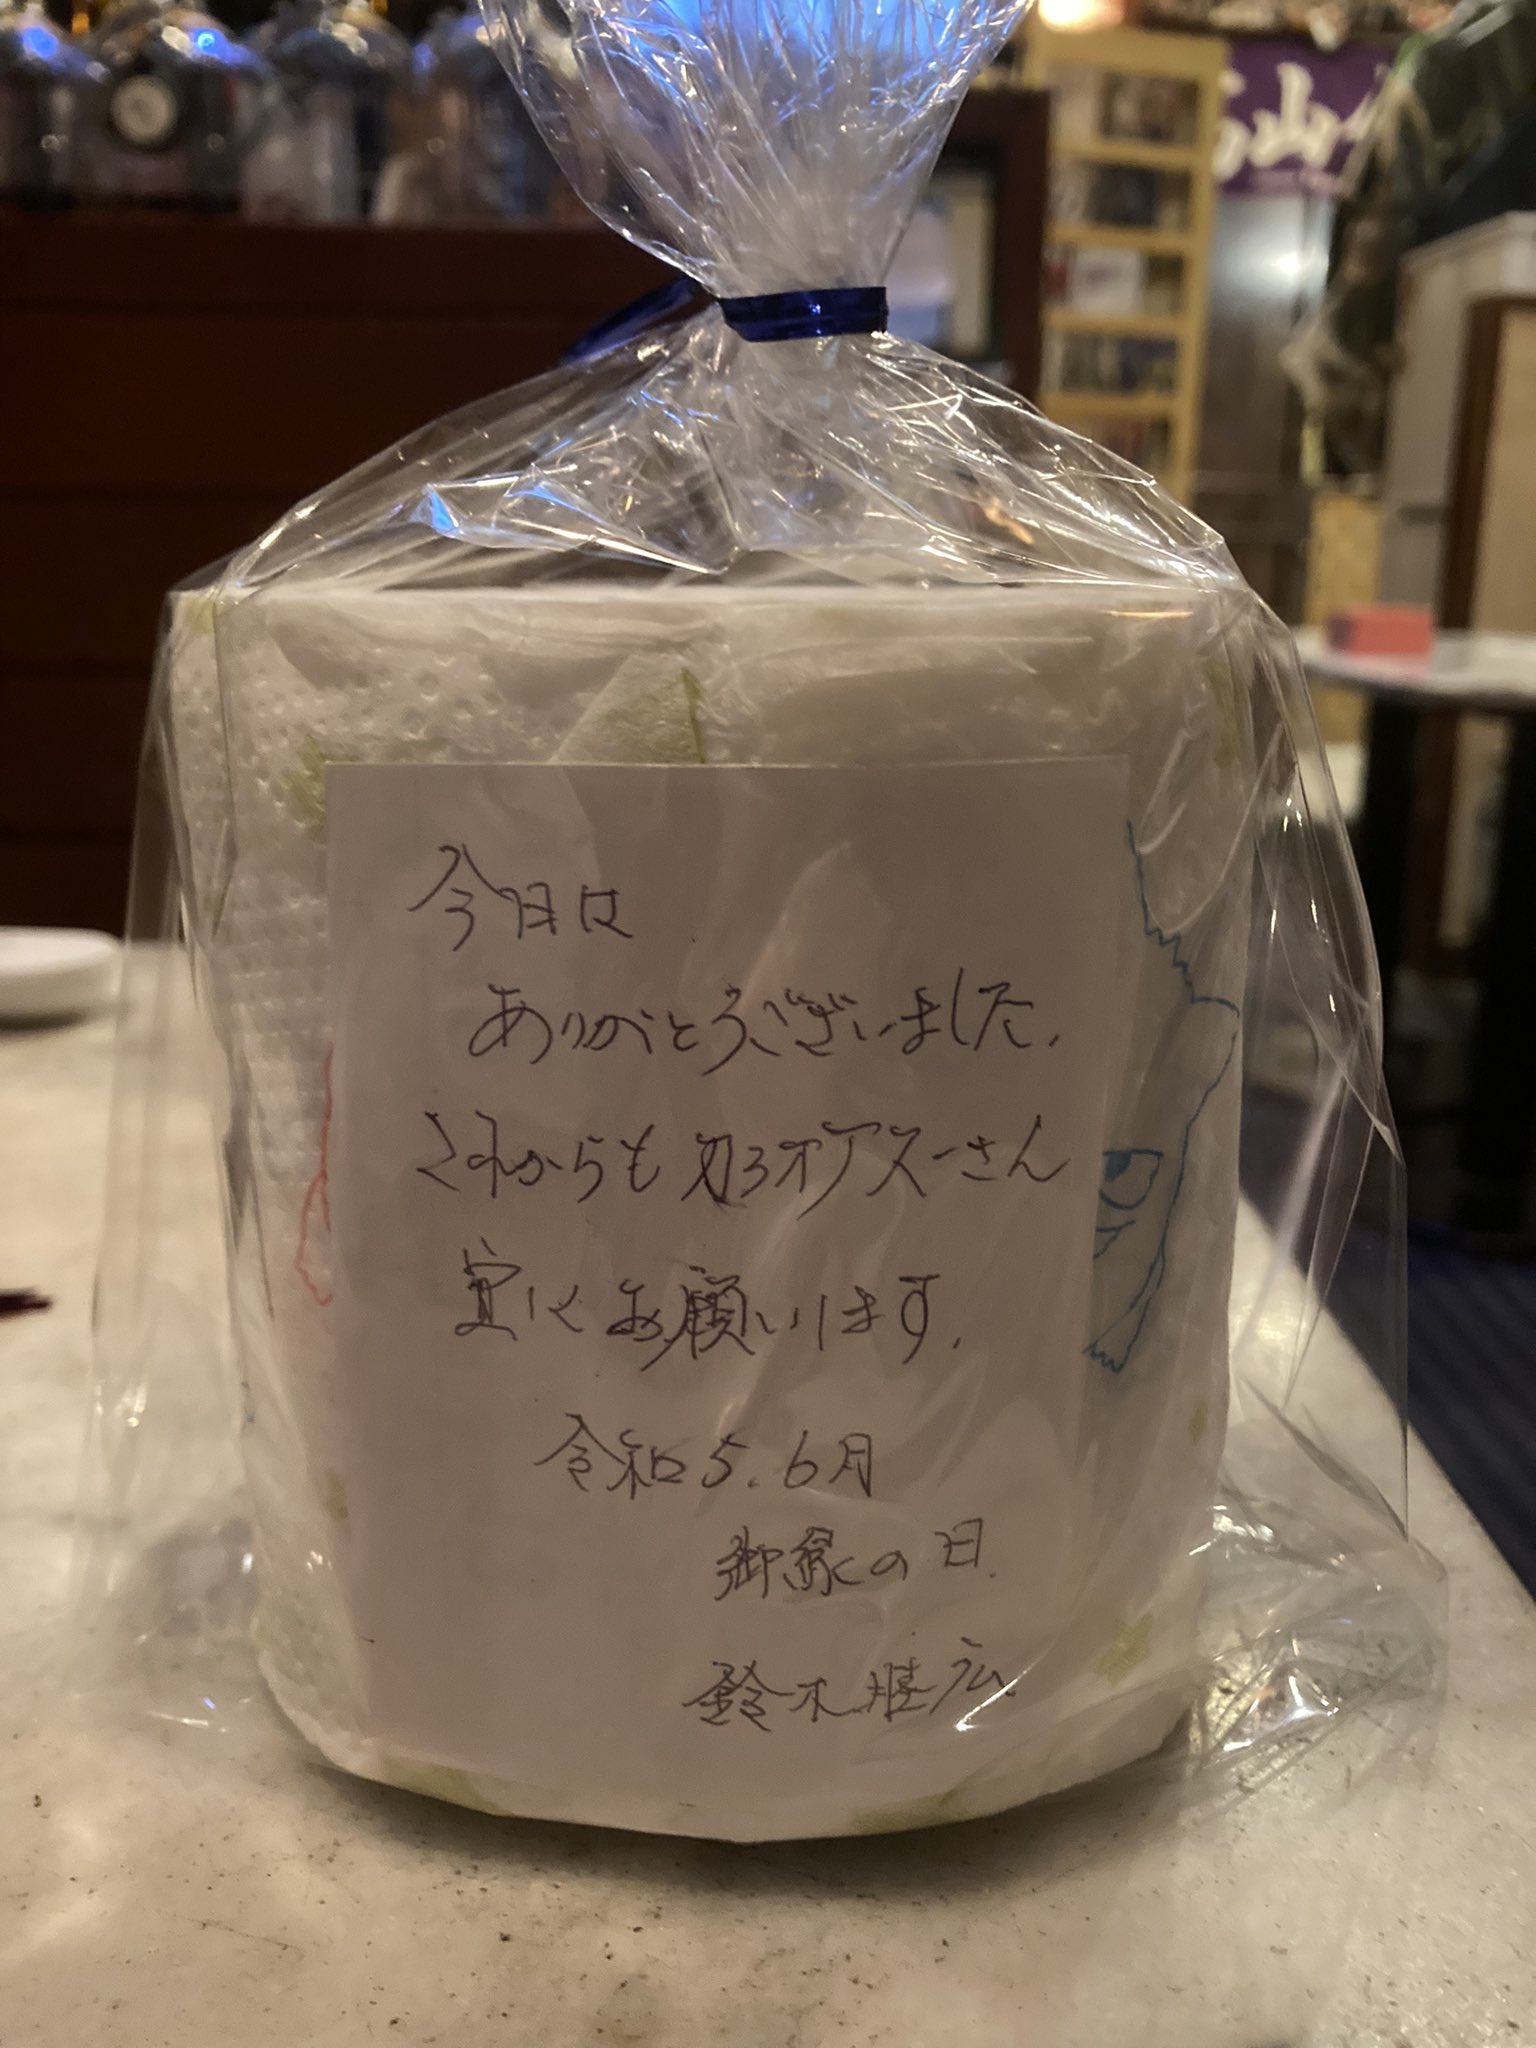 今日は
ありがとうございました.
これからもカラオケアスーさん
宜しくお願いします.
令和5.6月
御縁の日.
鈴木勝広.
山